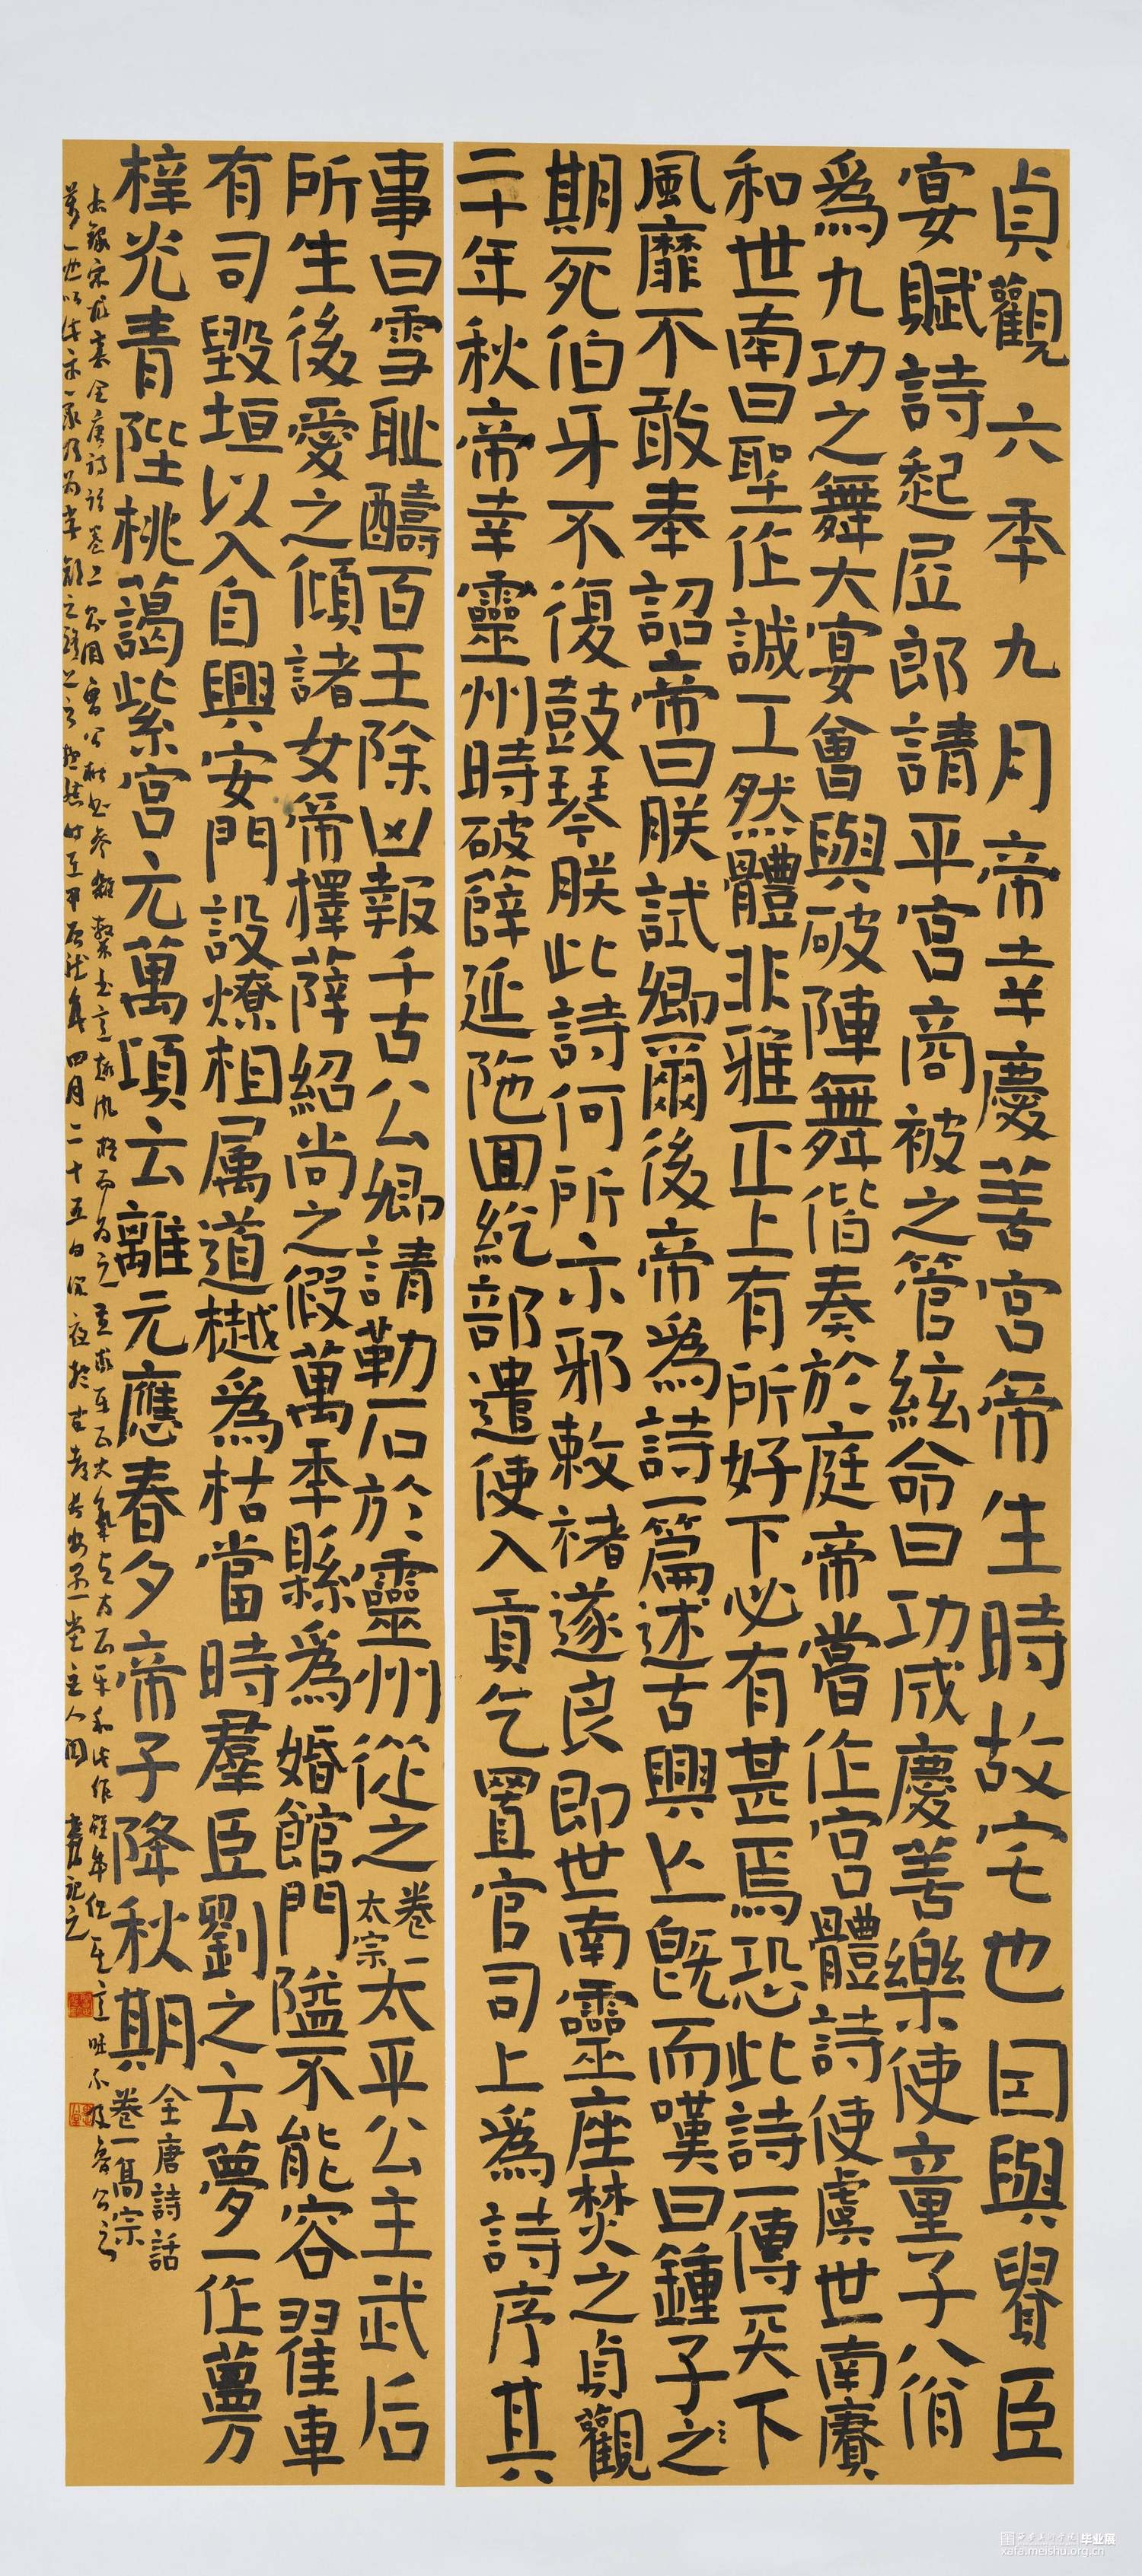 貞觀六季九月帝幸慶善宮帝生時故宅也因與貴臣
宴賦詩起居郎請平宮商被之管絃命曰功成慶善樂使童子八佾
爲九功之舞大宴會與破陣舞偕奏於庭帝嘗作宮體詩使虞世南賡
和世南曰聖作誠工然體非雅正上有所好下必有甚焉恐此詩一傳天下
風靡不敢奉詔帝曰朕試卿爾後帝爲詩一篇述古興亡既而嘆曰鍾子之
期死伯牙不復鼓琴朕此詩何所示邪敕褚遂良即世南靈座焚之貞觀
二十年秋帝幸靈州時破薛延陁回紇部遣使入貢乞置官司上爲詩序其
事曰雪恥酬百王除凶報千古公卿請勒石於靈州從之卷一太宗太平公主武后
所生後愛之傾諸女帝擇薛紹尚之假萬季縣爲婚館門隘不能容翟車
有司毀垣以入自興安門設燎相属道樾爲枯當時羣臣劉之云夢一作薎
梓光青陛桃藹紫宮元萬頃云離元應春夕帝子降秋期全唐詩話卷一高宗
四月二十五日